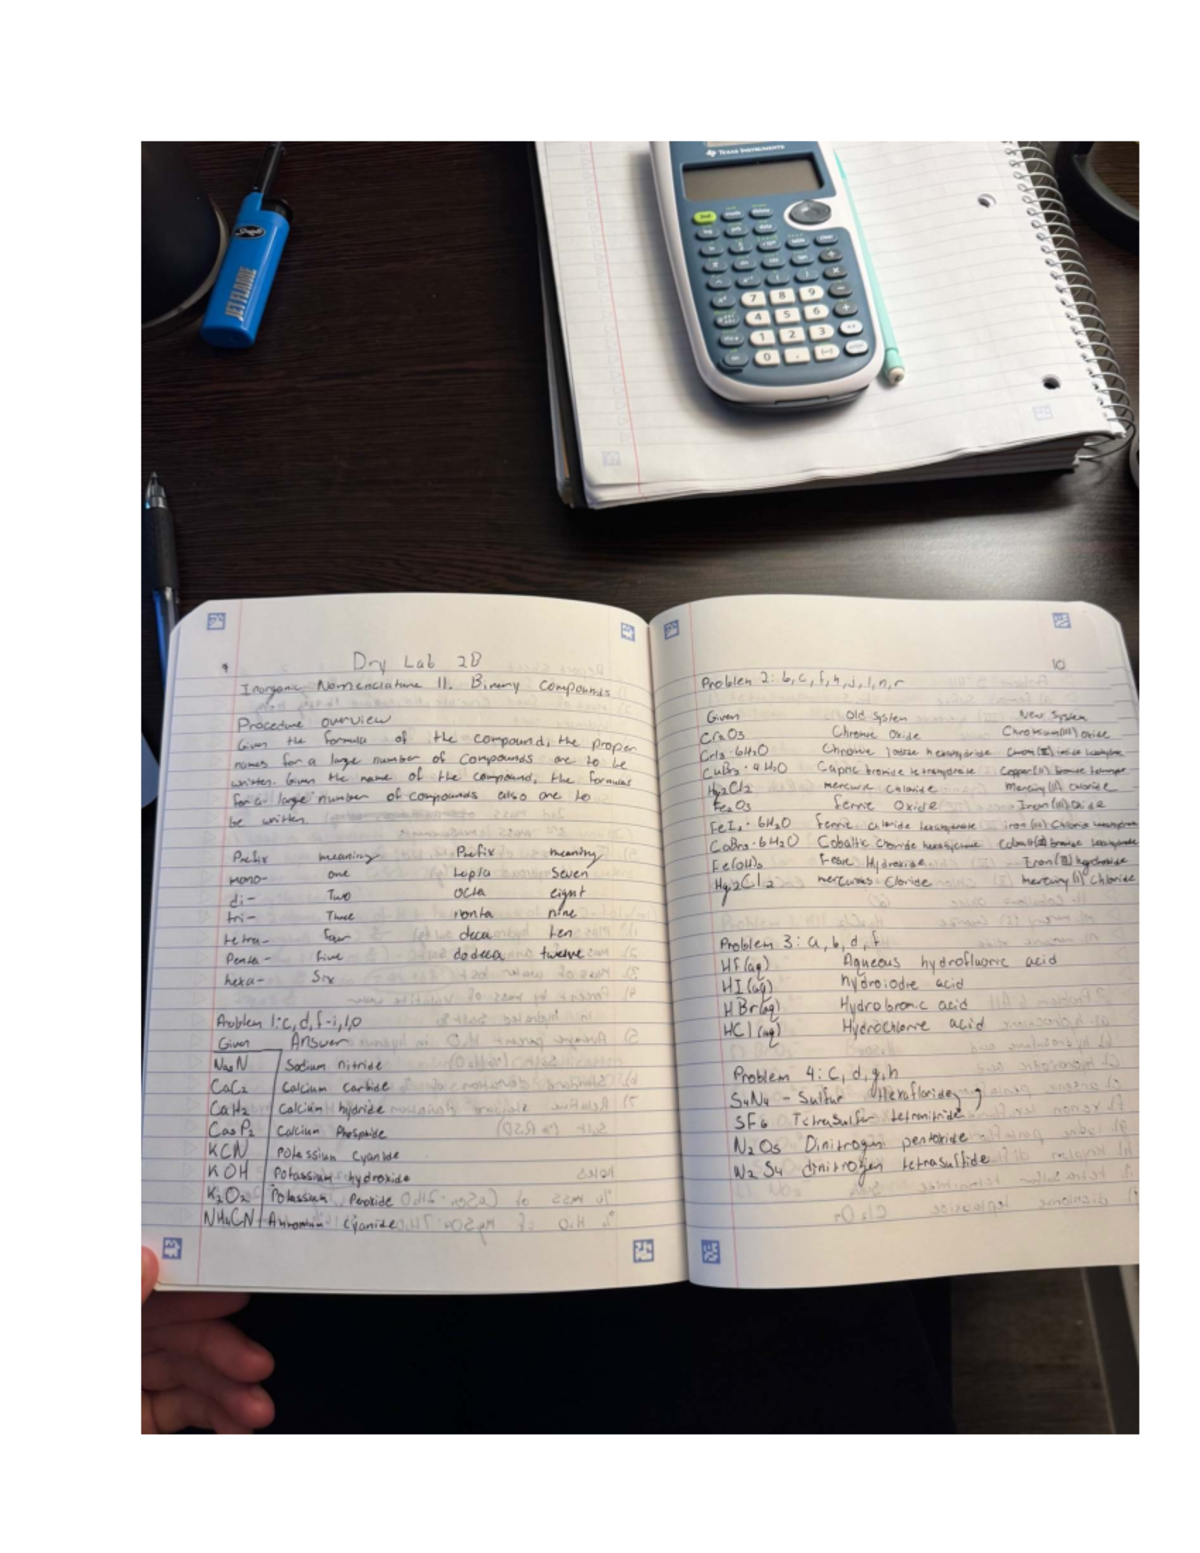 TEXAS INSTRUMENTS
Scripto
JET FLAME
7 8 9
4 5 6
1 2 3
0 . (-)
9
Dry Lab 2B
Inorganic Nomenclature II. Binary Compounds
Procedure overview
Given the formula of the compound, the proper
names for a large number of compounds are to be
written. Given the name of the compound, the formulas
for a large number of compounds also are to
be written.
Prefix meaning Prefix meaning
mono- one hepta seven
di- Two octa eight
tri- Three nonta nine
tetra- four deca ten
Penta- five dodeca twelve
hexa- Six
Problem 1: c, d, f-i, l, o
Given Answer
Na3N Sodium nitride
CaC2 Calcium carbide
CaH2 Calcium hydride
Ca3P2 Calcium Phosphide
KCN Potassium Cyanide
KOH Potassium hydroxide
K2O2 Potassium Peroxide
NH4CN Ammonium Cyanide
10
Problem 2: b, c, f, h, j, l, n, r
Given Old System New System
Cr2O3 Chromic Oxide Chromium(III) oxide
CrI3·6H2O Chromic Iodide hexahydride
CuBr2·4H2O Cupric bromide tetrahydrate Copper(II) bromide
Hg2Cl2 mercuric chloride Mercury(II) chloride
Fe2O3 ferric Oxide Iron(III) Oxide
FeI2·6H2O ferric chloride hexahydrate iron(III) Chloride
CoBr3·6H2O Cobaltic Chloride
Fe(OH)3 Hydroxide Iron(III) hydroxide
Hg2Cl2 mercurous Cloride mercury(I) Chloride
Problem 3: a, b, d, f
HF(aq) Aqueous hydrofluoric acid
HI(aq) hydroiodic acid
HBr(aq) Hydrobromic acid
HCl(aq) Hydrochloric acid
Problem 4: c, d, g, h
S4N4 - Sulfur Hexafloride
SF6 Tetrasulfur tetranitride
N2O5 Dinitrogen pentoxide
N2S4 dinitrogen tetrasulfide